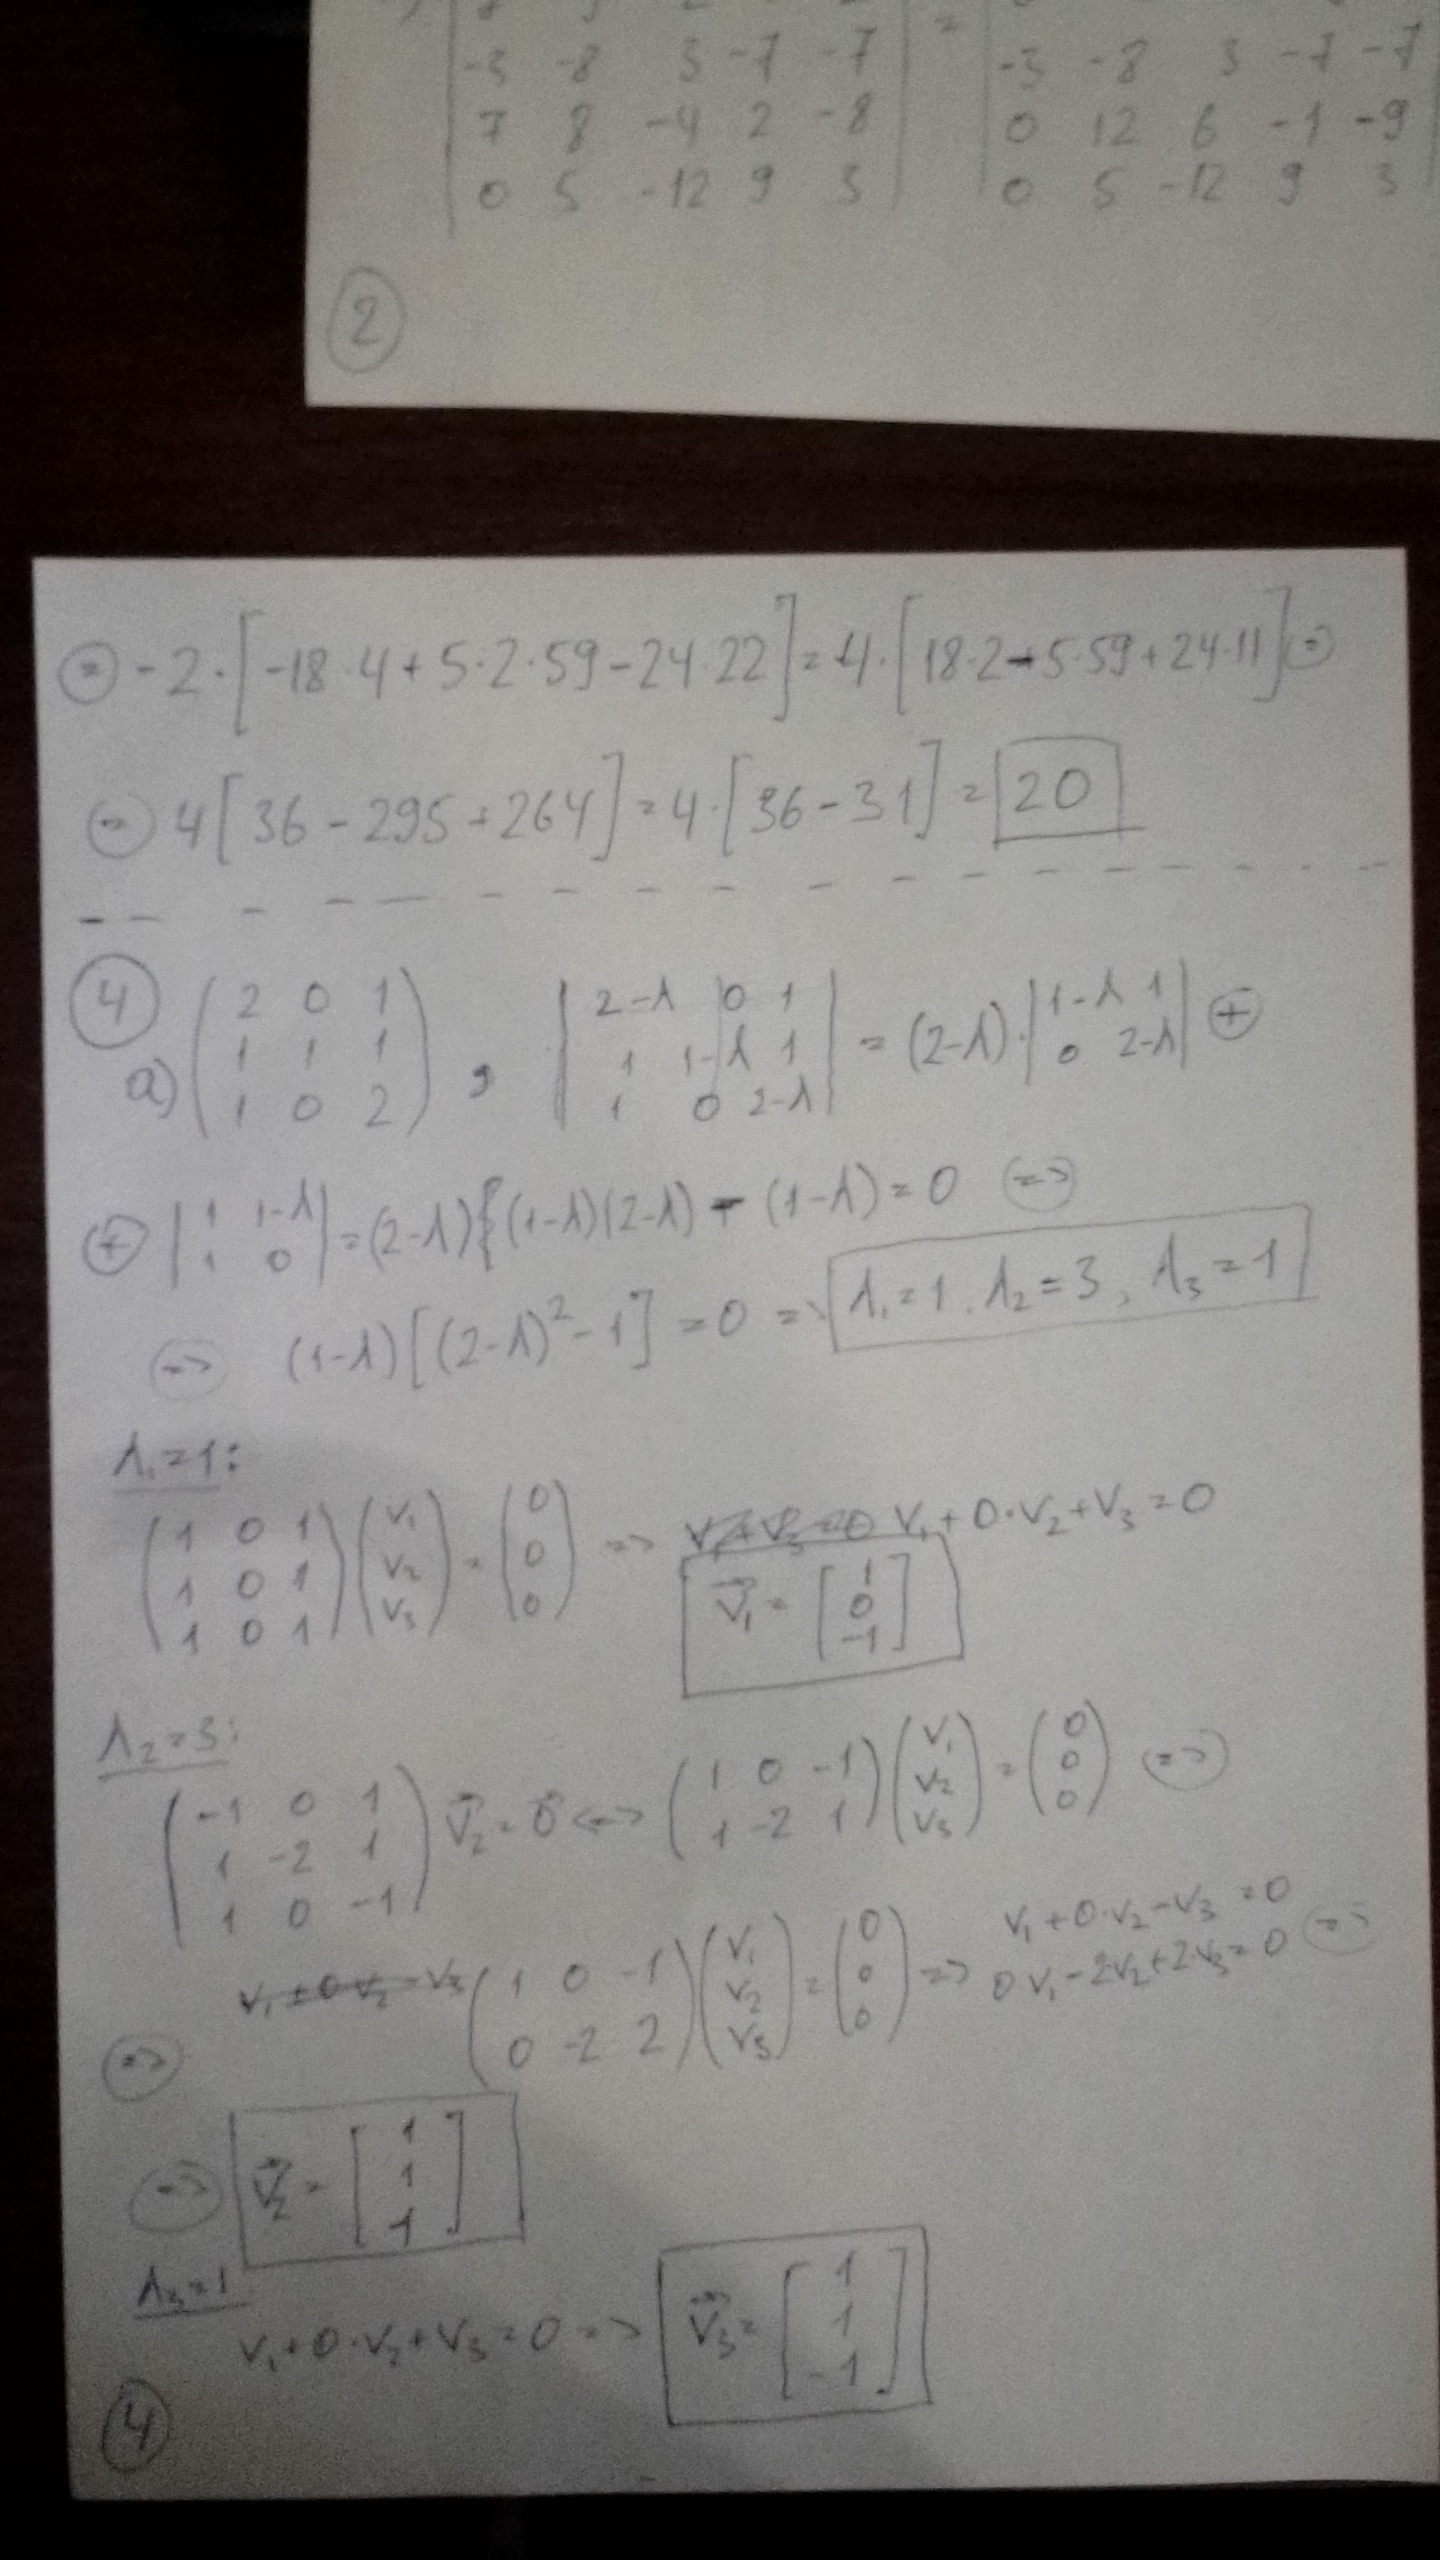 -3 -8 3 -7 -7 | = | -3 -8 3 -7 -7
7 8 -4 2 -8 | | 0 12 6 -1 -9
0 5 -12 9 3 | | 0 5 -12 9 3
②
⊜ -2·[-18·4+5·2·59-24·22] = 4·[18·2-5·59+24·11] ⊜
⊜ 4[36-295+264] = 4·[36-31] = 20
④
a) (2 0 1; 1 1 1; 1 0 2), |2-λ 0 1; 1 1-λ 1; 1 0 2-λ| = (2-λ)·|1-λ 1; 0 2-λ| ⊕
⊕ |1 1-λ; 1 0| = (2-λ){(1-λ)(2-λ) - (1-λ) = 0 (=>)
(=>) (1-λ)[(2-λ)²-1] = 0 => λ₁=1, λ₂=3, λ₃=1
λ₁=1:
(1 0 1; 1 0 1; 1 0 1)(v₁; v₂; v₃) = (0; 0; 0) => v₁+v₃=0 v₁+0·v₂+v₃=0
v⃗₁ = [1; 0; -1]
λ₂=3:
(-1 0 1; 1 -2 1; 1 0 -1) v⃗₂ = 0⃗ <=> (1 0 -1; 1 -2 1)(v₁; v₂; v₃) = (0; 0; 0) (=>)
(=>) v₁+0·v₂-v₃ (1 0 -1; 0 -2 2)(v₁; v₂; v₃) = (0; 0; 0) => v₁+0·v₂-v₃=0
0·v₁-2v₂+2·v₃=0 (=>)
(=>) v⃗₂ = [1; 1; 1]
λ₃=1
v₁+0·v₂+v₃=0 => v⃗₃ = [1; 1; -1]
④